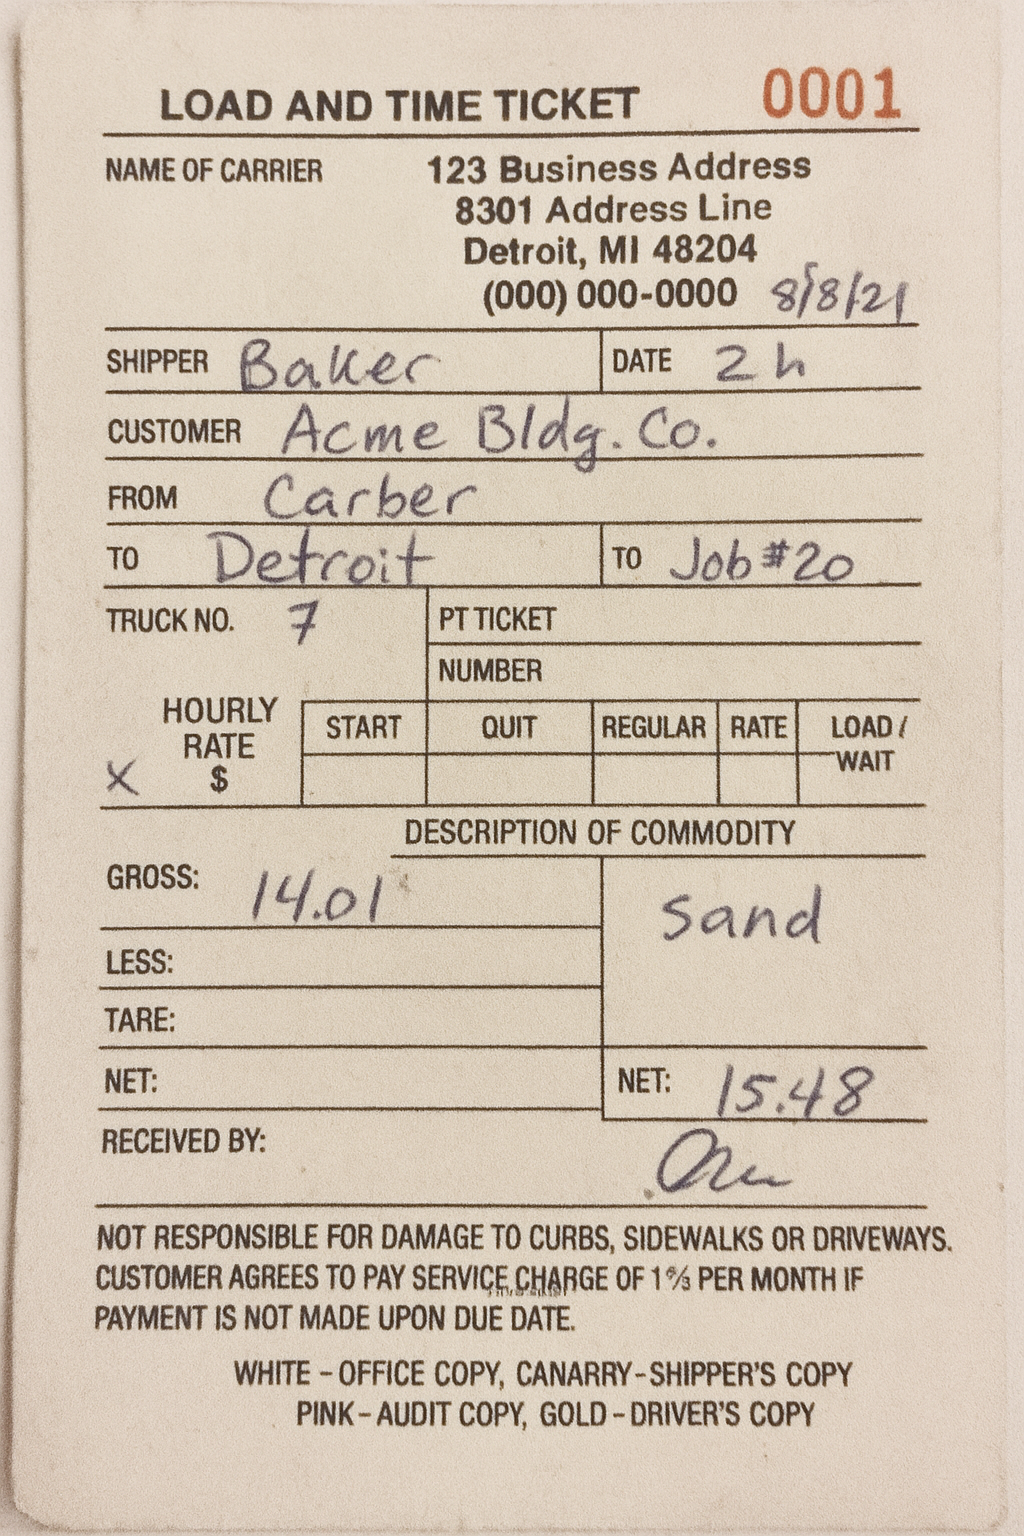 LOAD AND TIME TICKET 0001
NAME OF CARRIER 123 Business Address
8301 Address Line
Detroit, MI 48204
(000) 000-0000 8/8/21
SHIPPER Baker DATE 2 h
CUSTOMER Acme Bldg. Co.
FROM Carber
TO Detroit TO Job #20
TRUCK NO. 7 PT TICKET
NUMBER
HOURLY RATE
X $
START QUIT REGULAR RATE LOAD / WAIT
DESCRIPTION OF COMMODITY
GROSS: 14.01 sand
LESS:
TARE:
NET: NET: 15.48
RECEIVED BY:
NOT RESPONSIBLE FOR DAMAGE TO CURBS, SIDEWALKS OR DRIVEWAYS.
CUSTOMER AGREES TO PAY SERVICE CHARGE OF PER MONTH IF
PAYMENT IS NOT MADE UPON DUE DATE.
WHITE – OFFICE COPY, CANARRY-SHIPPER'S COPY
PINK – AUDIT COPY, GOLD – DRIVER'S COPY